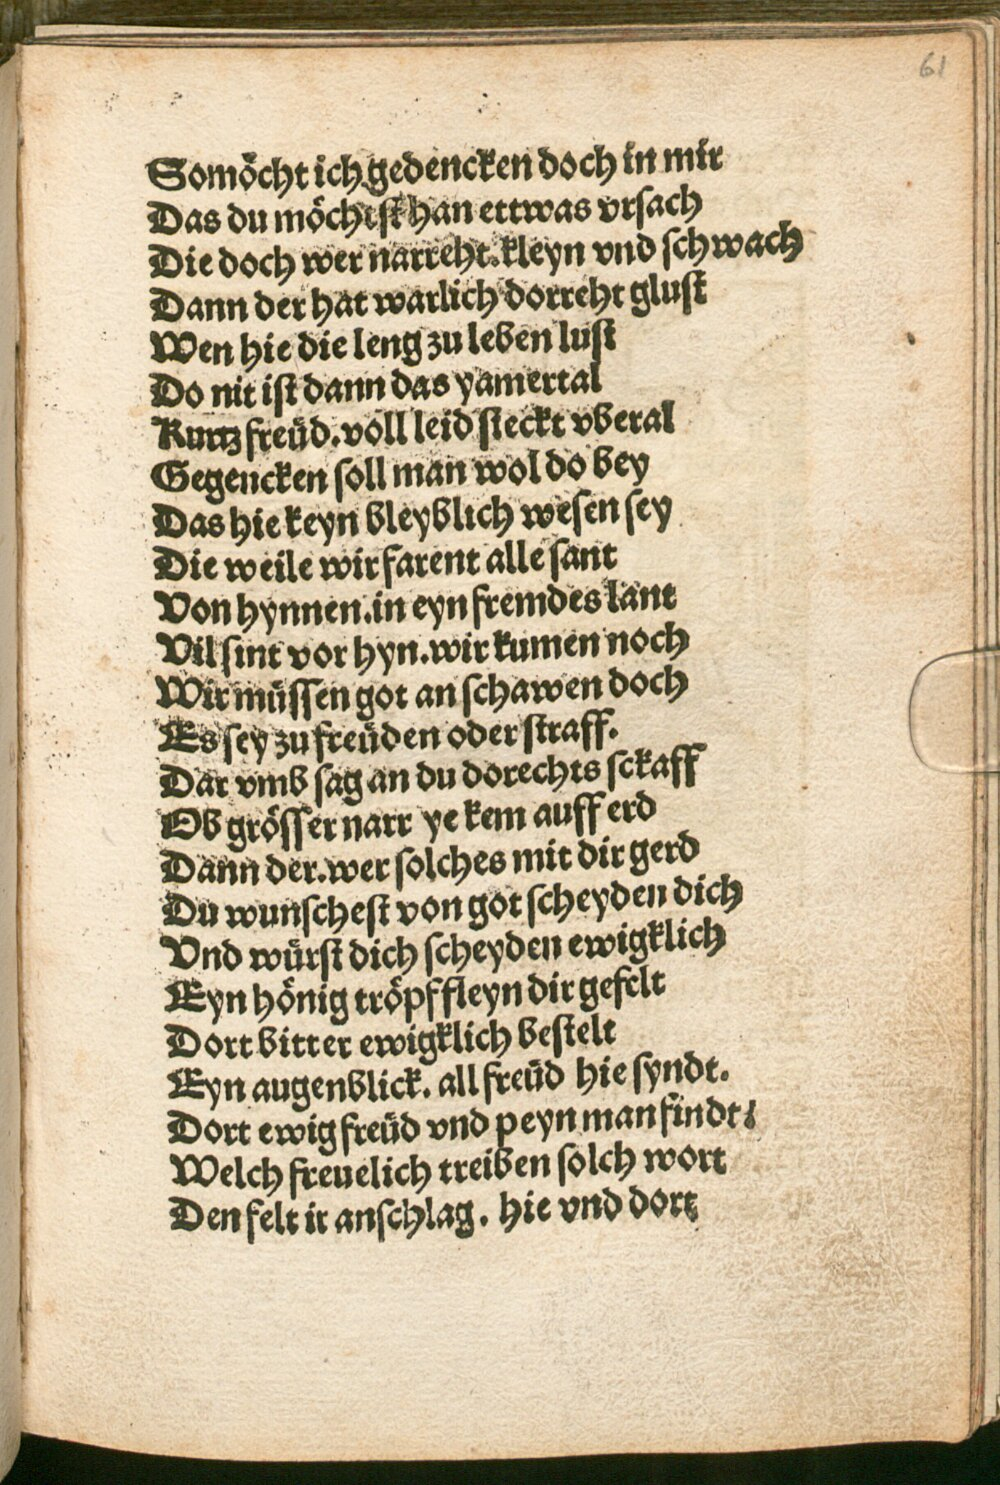 61
Somöcht ich gedencken doch in mir
Das du möchtst han ettwas vrsach
Die doch wer narreht.kleyn vnd schwach
Dann der hat warlich dorreht glust
Wen hie die leng zu leben lust
Do nit ist dann das yamertal
Kurtz freüd.voll leid steckt vberal
Gegencken soll man wol do bey
Das hie keyn bleyblich wesen sey
Die weile wir farent alle sant
Von hynnen.in eyn fremdes lant
Vil sint vor hyn.wir kumen noch
Wir müssen got an schawen doch
Es sey zu freüden oder straff.
Dar vmb sag an du dorechts sckaff
Ob grösser narr ye kem auff erd
Dann der.wer solches mit dir gerd
Du wunschest von got scheyden dich
Vnd würst dich scheyden ewigklich
Eyn hönig tröpffleyn dir gefelt
Dort bitter ewigklich bestelt
Eyn augenblick. all freüd hie syndt.
Dort ewig freüd vnd peyn man findt
Welch freuelich treiben solch wort
Den felt ir anschlag. hie vnd dort